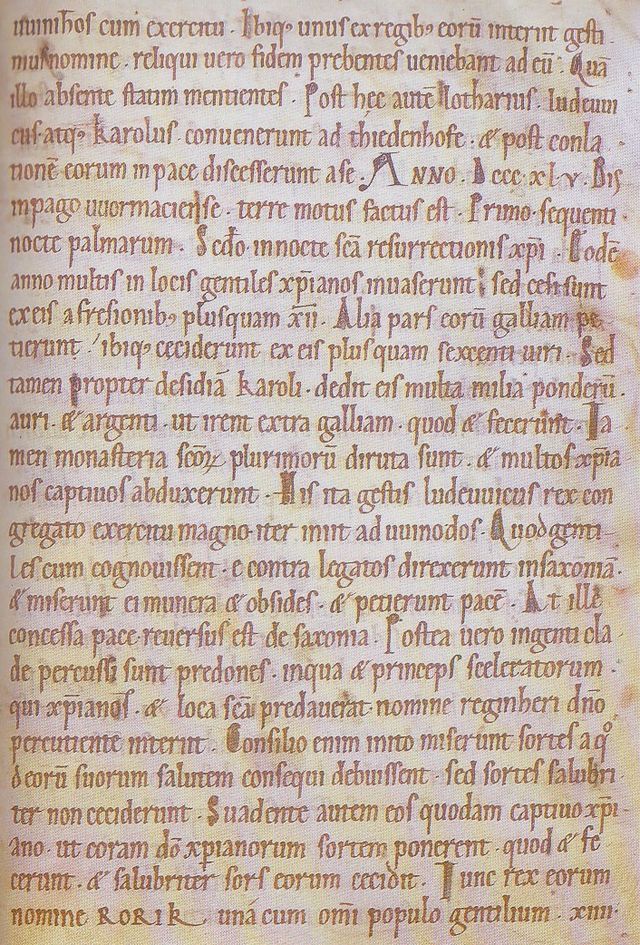 uuinithos cum exercitu . Ibiq; unus ex regib; eorū interiit gesti
musnomine . reliqui uero fidem prebentes ueniebant ad eū . Quā
illo absente statim mentientes . Post hec autē lotharius . ludeuui
cus atq; karolus . conuenerunt ad thiedenhofe . & post conla
tionē eorum in pace discesserunt a se . ANNO . Dccc . xlv . Bis
in pago uuormaciense . terre motus factus est . Primo . sequenti
nocte palmarum . Sedo . in nocte scā resurrectionis xp̄i . Eodē
anno multis in locis gentiles xp̄ianos inuaserunt ; sed cesi sunt
ex eis a fresionib; plusquam xii . Alia pars eorū galliam pe
tierunt / ibiq; ceciderunt ex eis plus quam sexcenti uiri . Sed
tamen propter desidiā karoli . dedit eis multa milia ponderū .
auri . & argenti . ut irent extra galliam . quod & fecerunt . Ta
men monasteria scōꝝ plurimorū diruta sunt . & multos xp̄ia
nos captiuos abduxerunt . His ita gestis ludeuuicus rex con
gregato exercitu magno . iter iniit ad uuinodos . Quod genti
les cum cognouissent . e contra legatos direxerunt in saxoniā .
& miserunt ei munera & obsides . & petierunt pacē . At ille
concessa pace . reuersus est de saxonia . Postea uero ingenti cla
de percussi sunt predones . in qua & princeps sceleratorum .
qui xp̄ianos . & loca scā predauerat . nomine reginheri dn̄o
percutiente interiit . Consilio enim inito miserunt sortes a qͦ
deorū suorum salutem consequi debuissent . sed sortes salubri
ter non ceciderunt . Suadente autem eos quodam captiuo xp̄i
ano . ut coram dō xp̄ianorum sortem ponerent . quod & fe
cerunt . & salubriter sors eorum cecidit . Tunc rex eorum
nomine RORIK unā cum omī populo gentilium . xiiii .